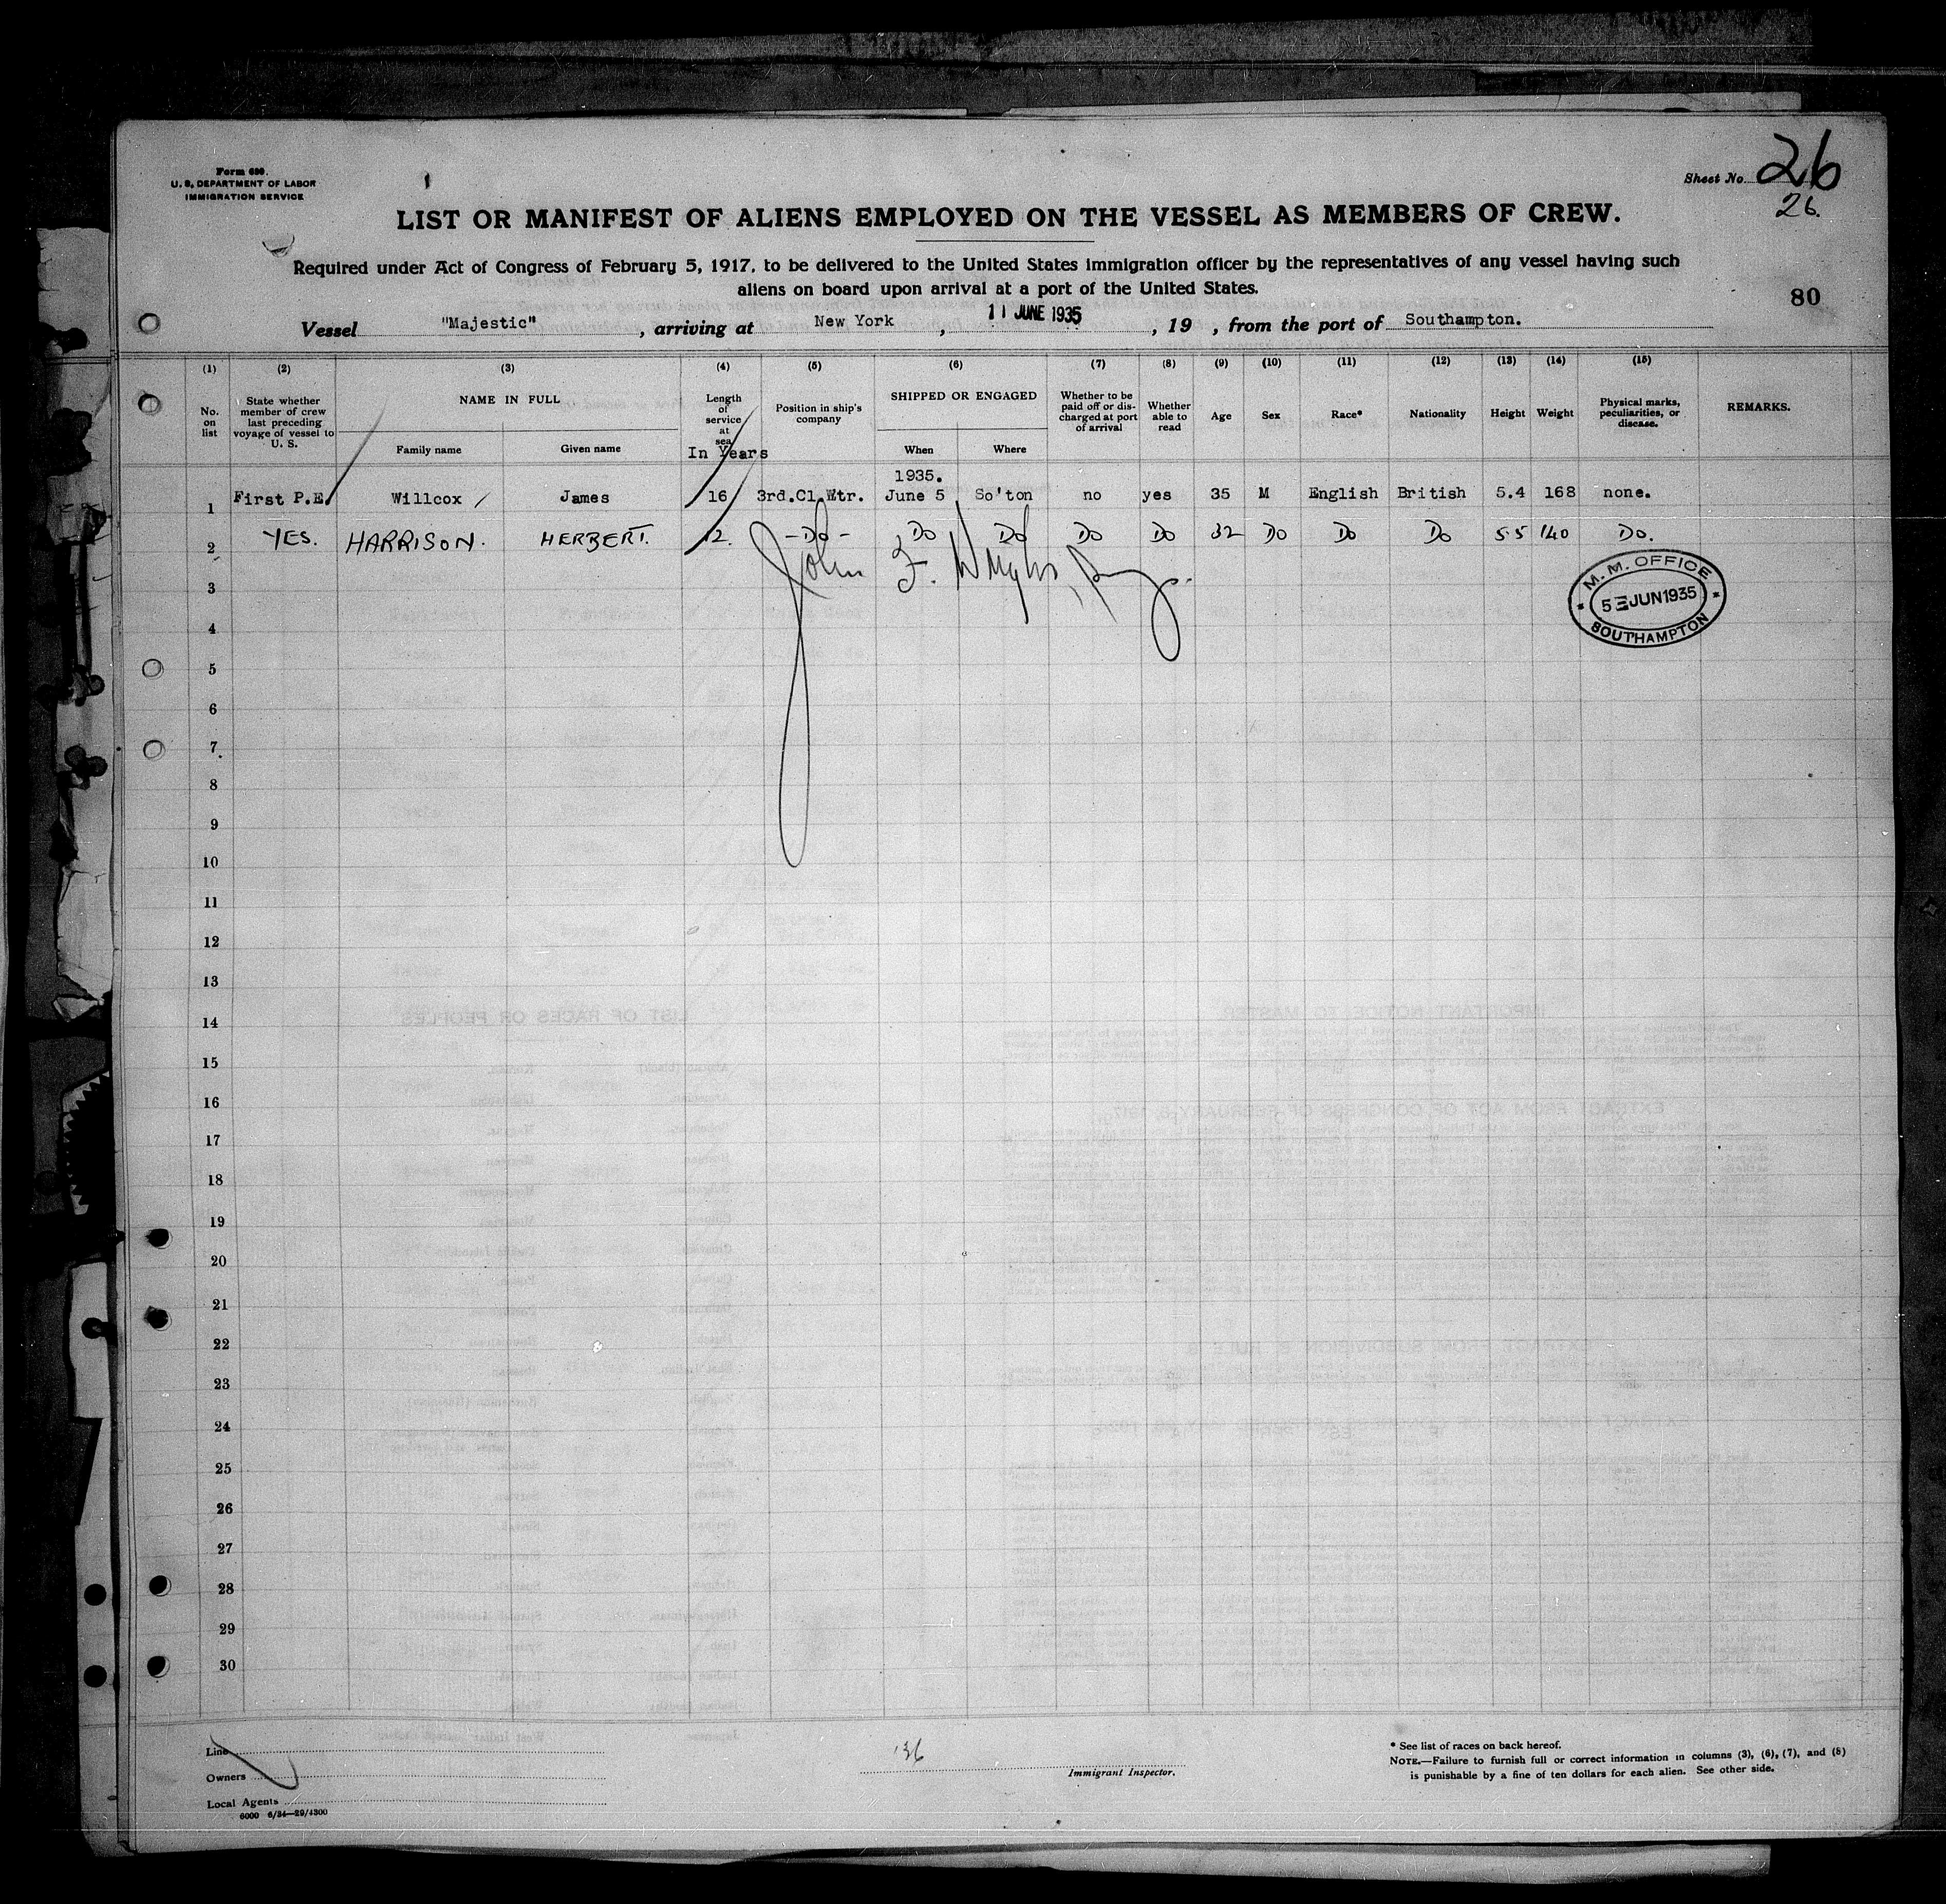 Form 680.
U. S. DEPARTMENT OF LABOR
IMMIGRATION SERVICE
Sheet No. 26
26.
LIST OR MANIFEST OF ALIENS EMPLOYED ON THE VESSEL AS MEMBERS OF CREW.
Required under Act of Congress of February 5, 1917, to be delivered to the United States immigration officer by the representatives of any vessel having such
aliens on board upon arrival at a port of the United States.
80
Vessel "Majestic", arriving at New York, 11 JUNE 1935, 19 , from the port of Southampton.
(1) (2) (3) (4) (5) (6) (7) (8) (9) (10) (11) (12) (13) (14) (15)
No. on list
State whether member of crew last preceding voyage of vessel to U. S.
NAME IN FULL
Family name Given name
Length of service at sea
In Years
Position in ship's company
SHIPPED OR ENGAGED
When Where
Whether to be paid off or discharged at port of arrival
Whether able to read
Age
Sex
Race*
Nationality
Height
Weight
Physical marks, peculiarities, or disease.
REMARKS.
1935.
1 First P.E. Willcox James 16 3rd.Cl.Wtr. June 5 So'ton no yes 35 M English British 5.4 168 none.
2 YES. HARRISON. HERBERT. 12. -Do- Do Do Do Do 32 Do Do Do 5.5 140 Do.
John F.
M. M. OFFICE
5 JUN 1935
SOUTHAMPTON
3
4
5
6
7
8
9
10
11
12
13
14
15
16
17
18
19
20
21
22
23
24
25
26
27
28
29
30
Line
Owners
Local Agents
6000 6/34—29/4300
Immigrant Inspector.
* See list of races on back hereof.
NOTE.—Failure to furnish full or correct information in columns (3), (6), (7), and (8)
is punishable by a fine of ten dollars for each alien. See other side.